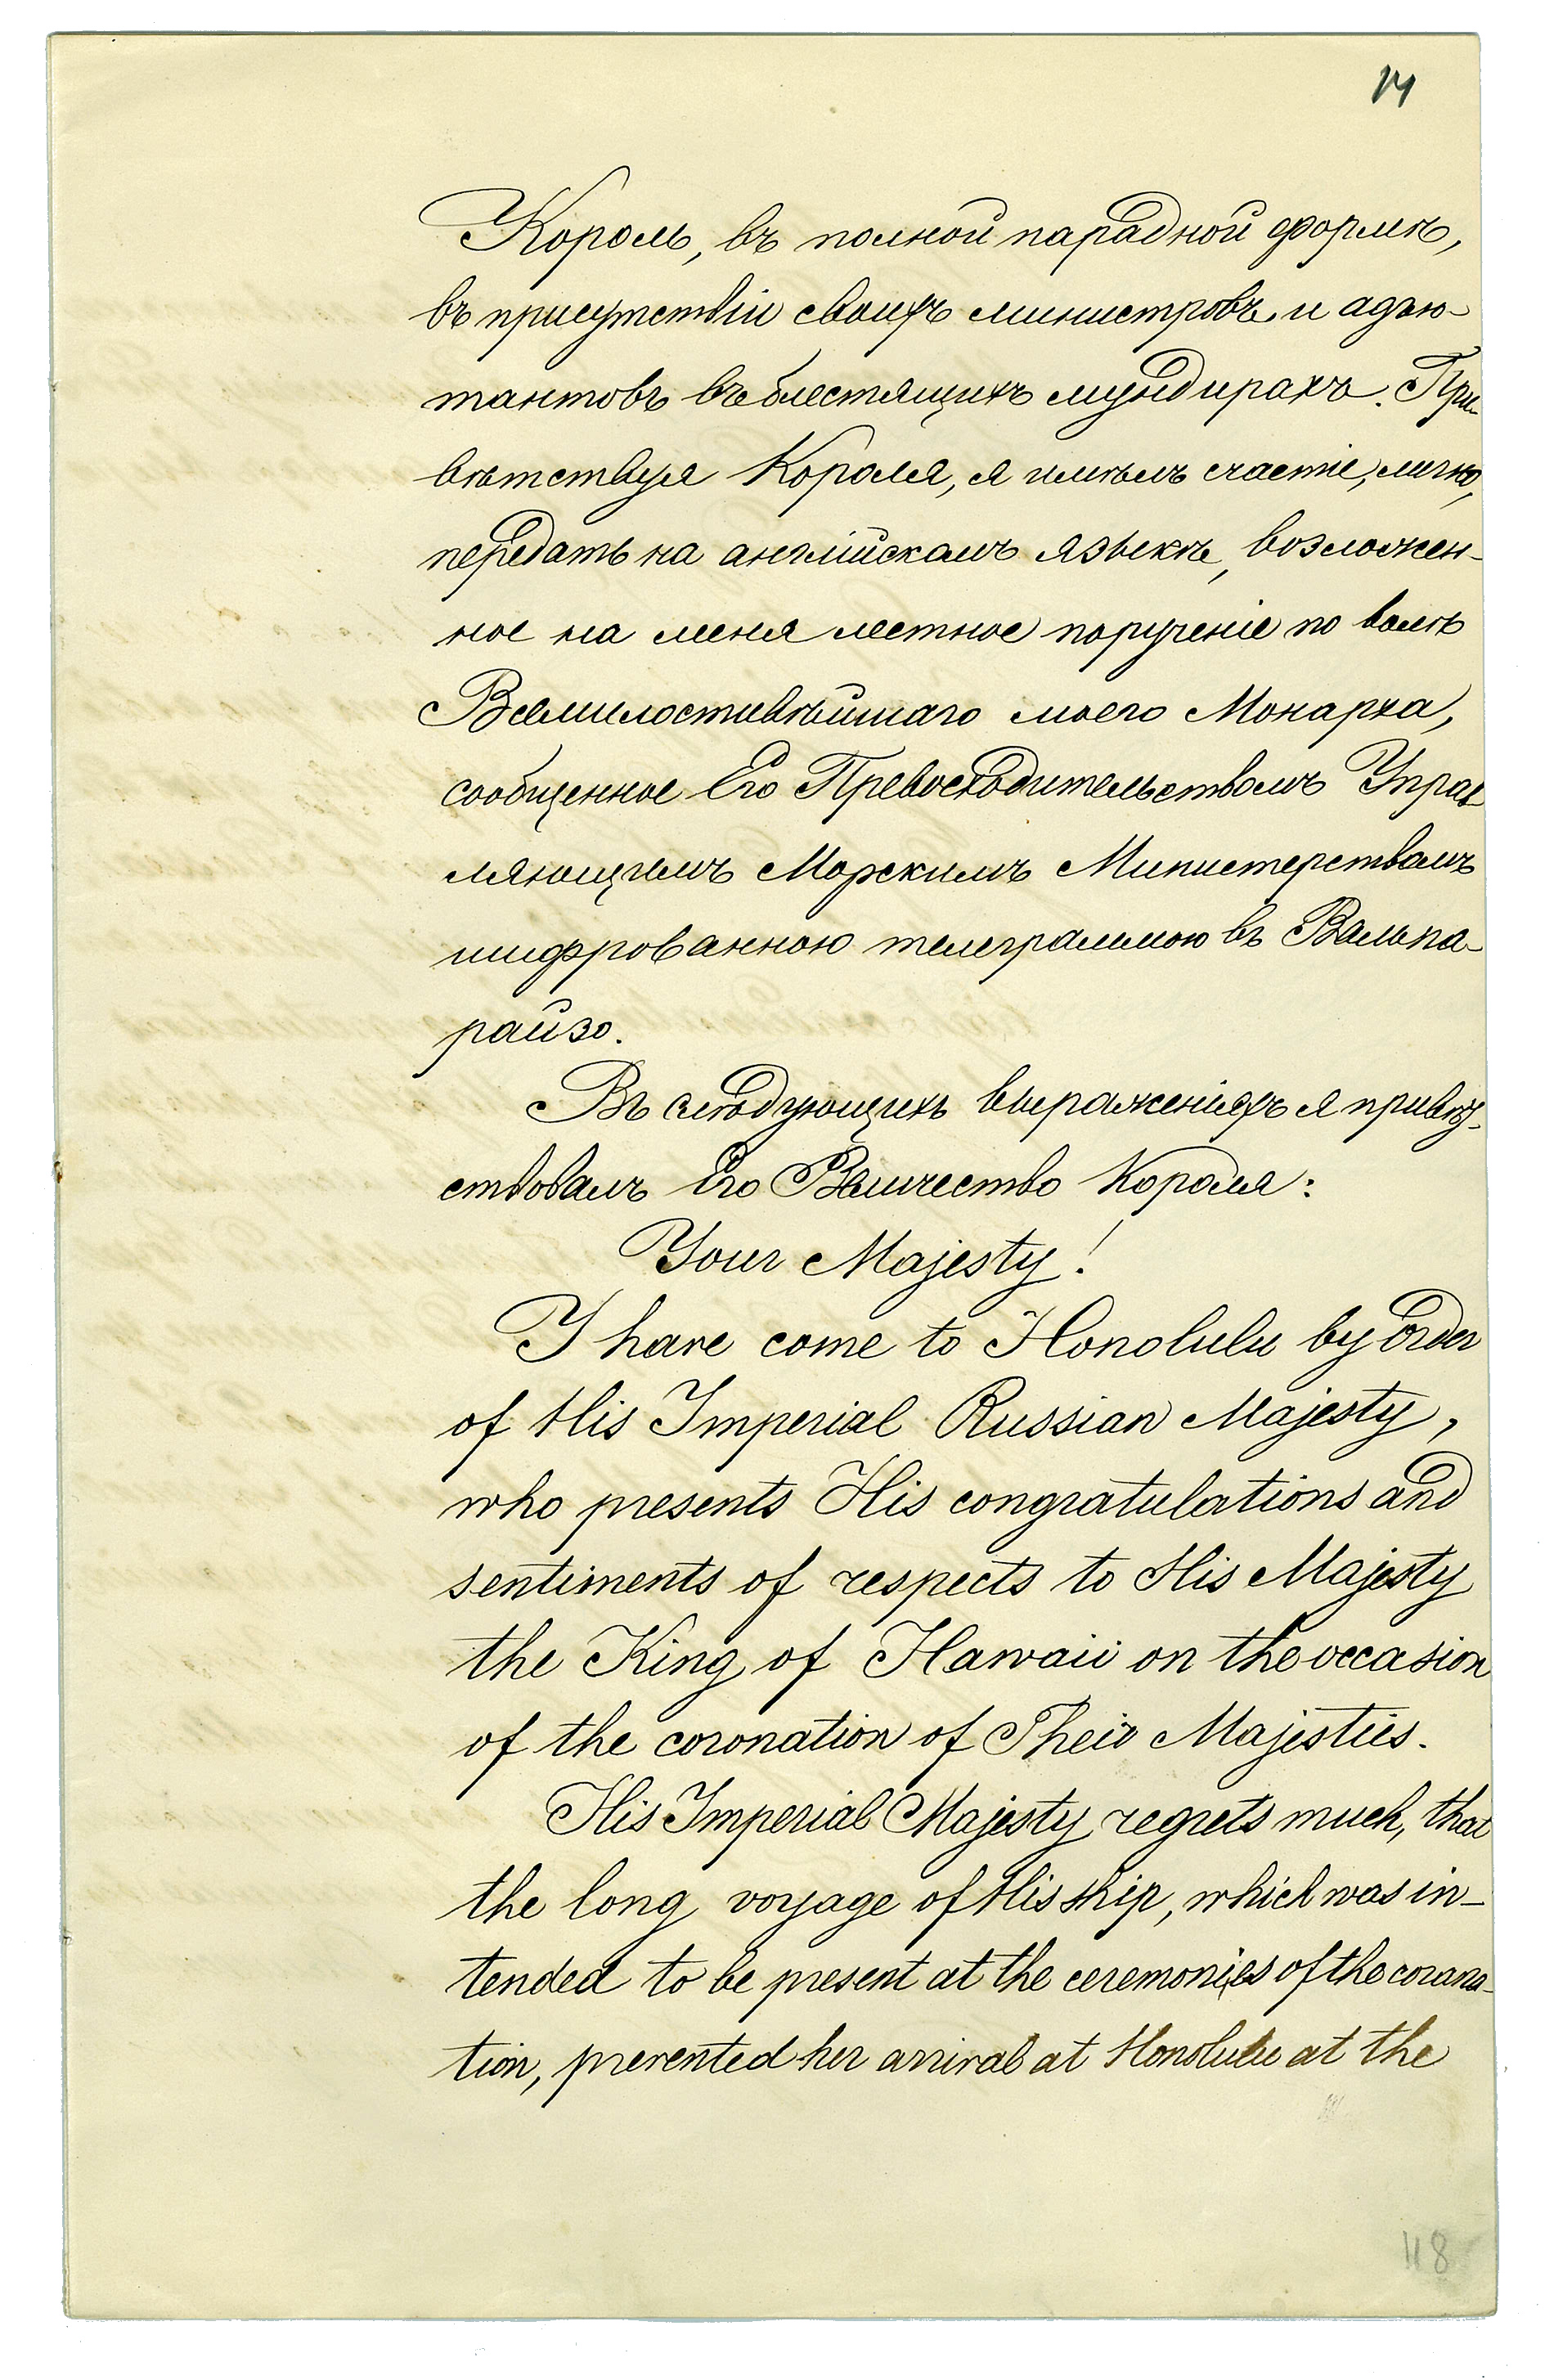 14
Король, въ полной парадной формѣ,
въ присутствіи своихъ министровъ и адъю-
тантовъ въ блестящихъ мундирахъ. При-
вѣтствуя Короля, я имѣлъ счастіе, лично,
передать на англійскомъ языкѣ, возложен-
ное на меня лестное порученіе по волѣ
Всемилостивѣйшаго моего Монарха,
сообщенное Его Превосходительствомъ Управ
ляющимъ Морскимъ Министерствомъ
шифрованною телеграммою въ Вальпа-
райзо.
Въ слѣдующихъ выраженіяхъ я привѣт-
ствовалъ Его Величество Короля:
Your Majesty!
I have come to Honolulu by order
of His Imperial Russian Majesty,
who presents His congratulations and
sentiments of respects to His Majesty
the King of Hawaii on the occasion
of the coronation of Their Majesties.
His Imperial Majesty regrets much, that
the long voyage of His ship, which was in-
tended to be present at the ceremonies of the corona-
tion, prevented her arrival at Honolulu at the
118